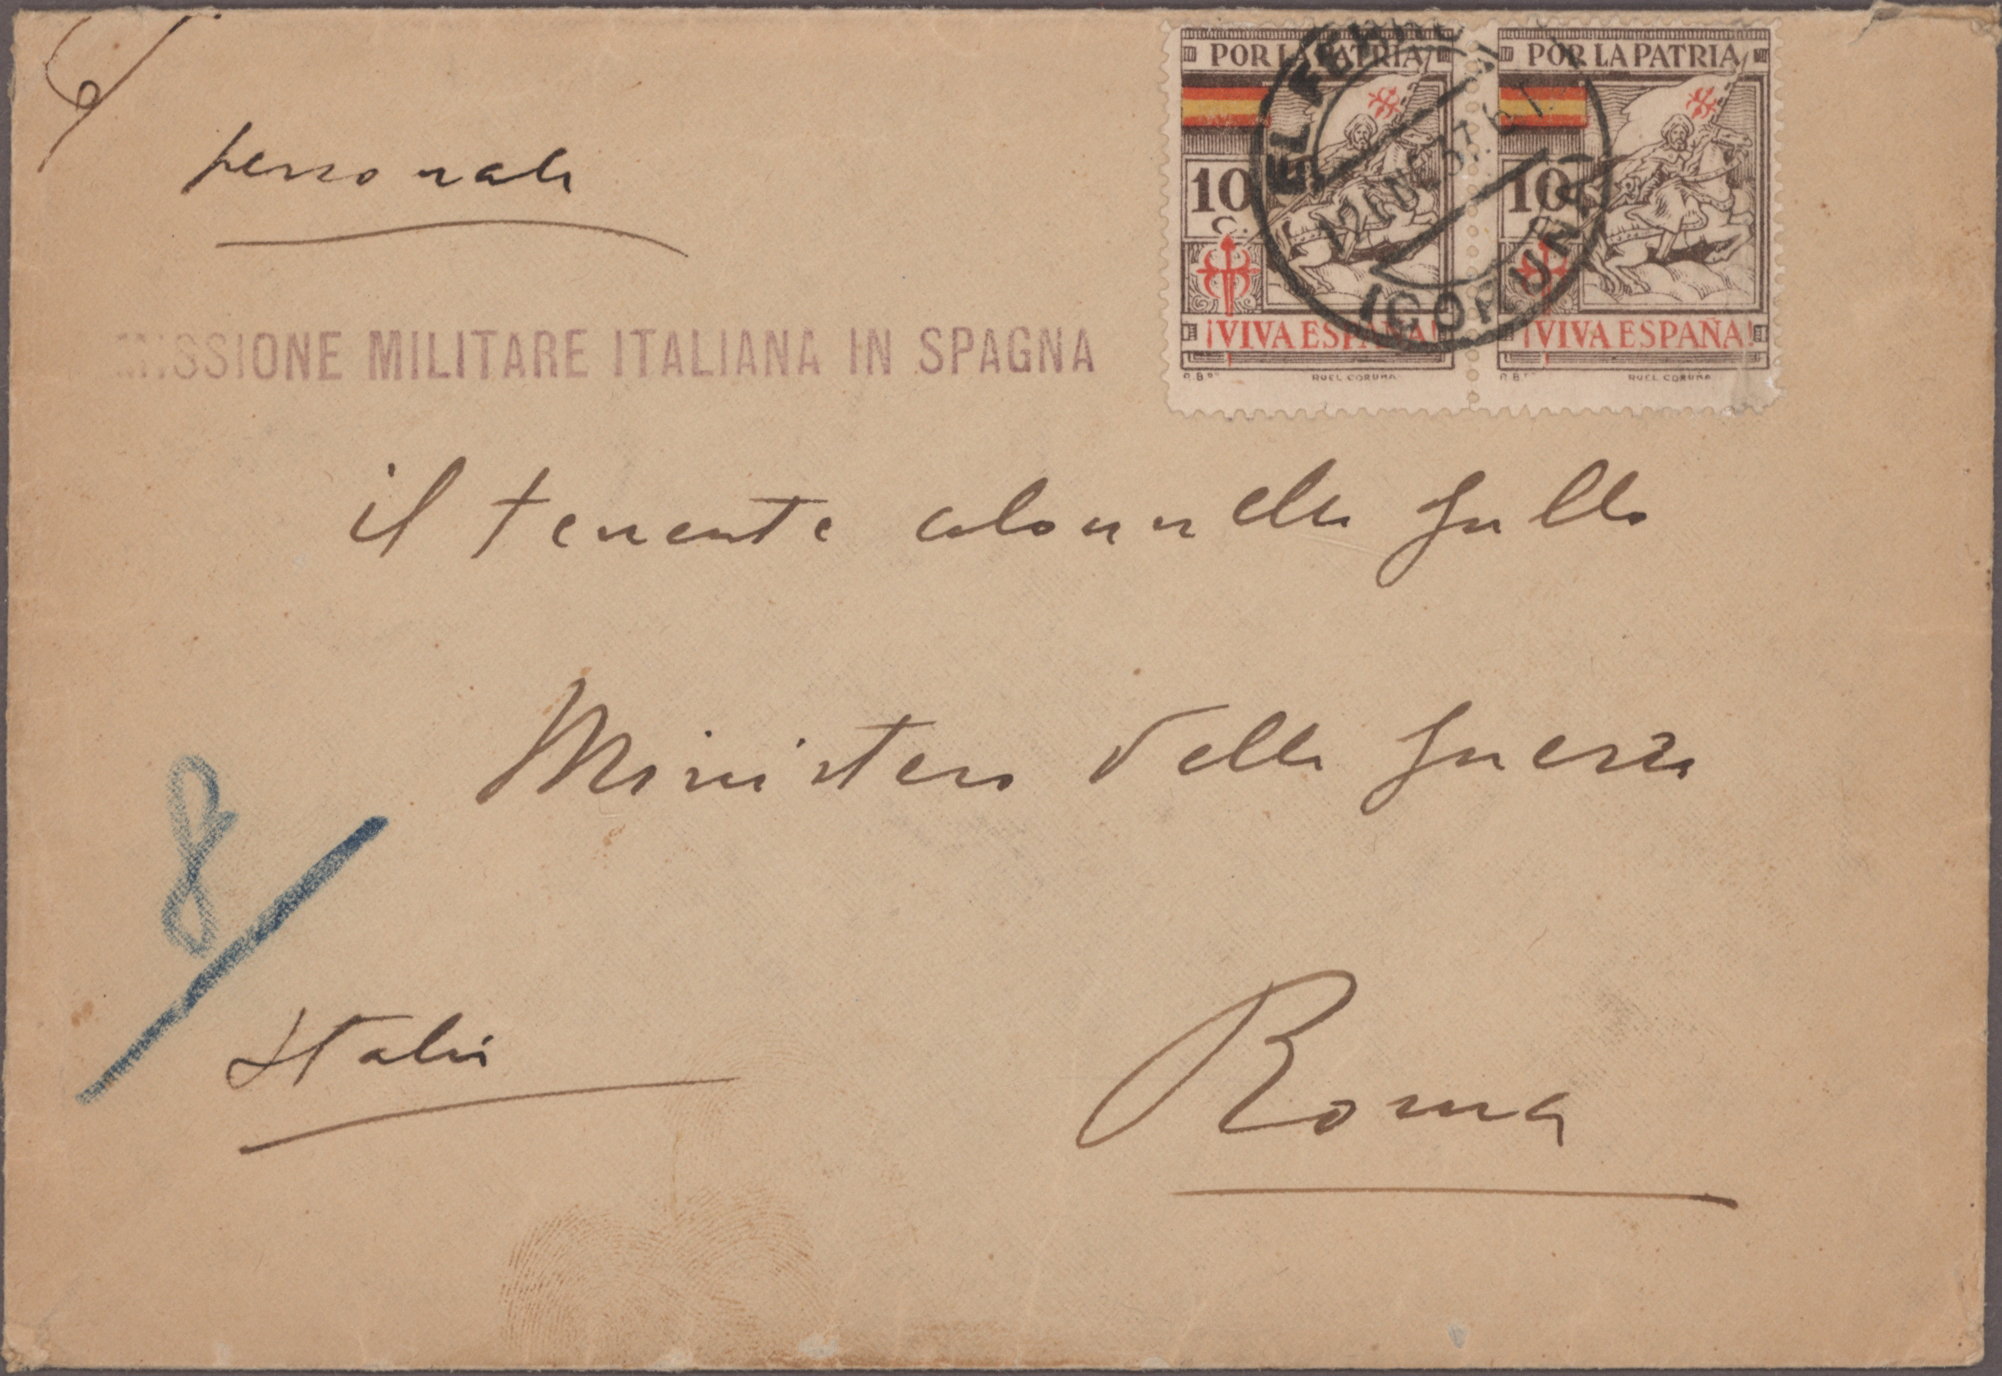 personale
POR LA PATRIA
POR LA PATRIA
10
C.
10
¡VIVA ESPAÑA!
¡VIVA ESPAÑA!
RUEL CORUÑA
RUEL CORUÑA
EL FERRO
CORUÑA
MISSIONE MILITARE ITALIANA IN SPAGNA
il tenente colonnello Gallo
Ministero della Guerra
8
Italia
Roma